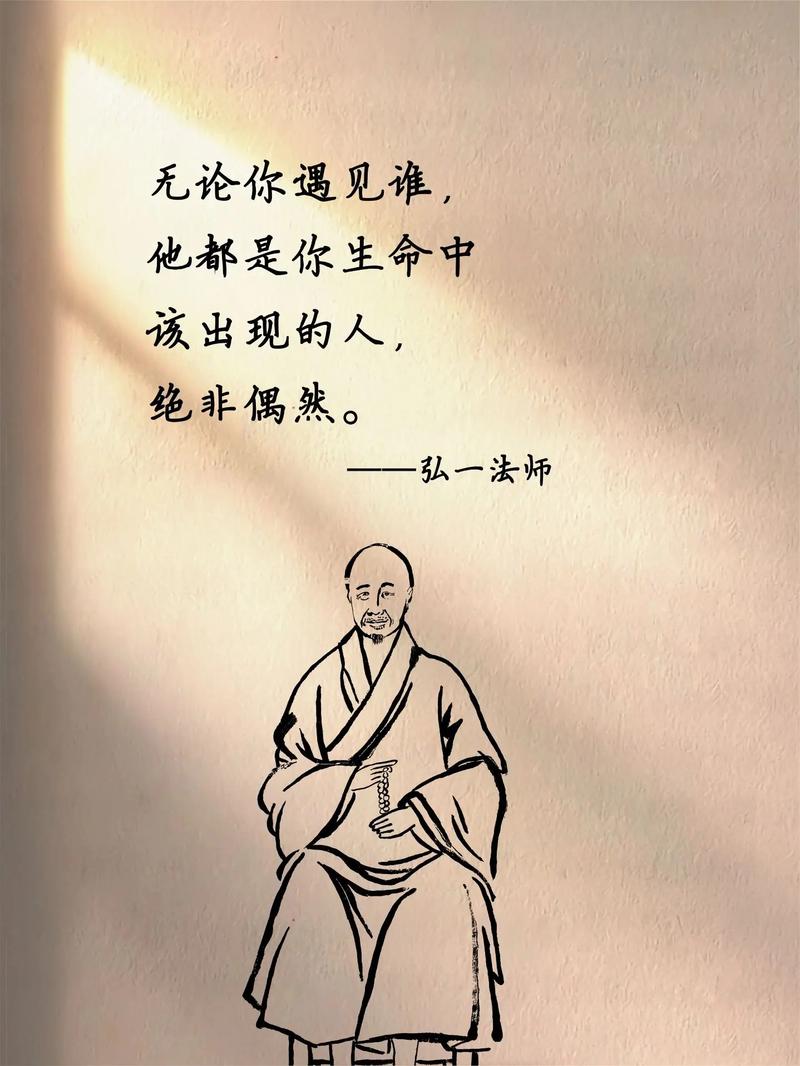 无论你遇见谁，
他都是你生命中
该出现的人，
绝非偶然。
——弘一法师